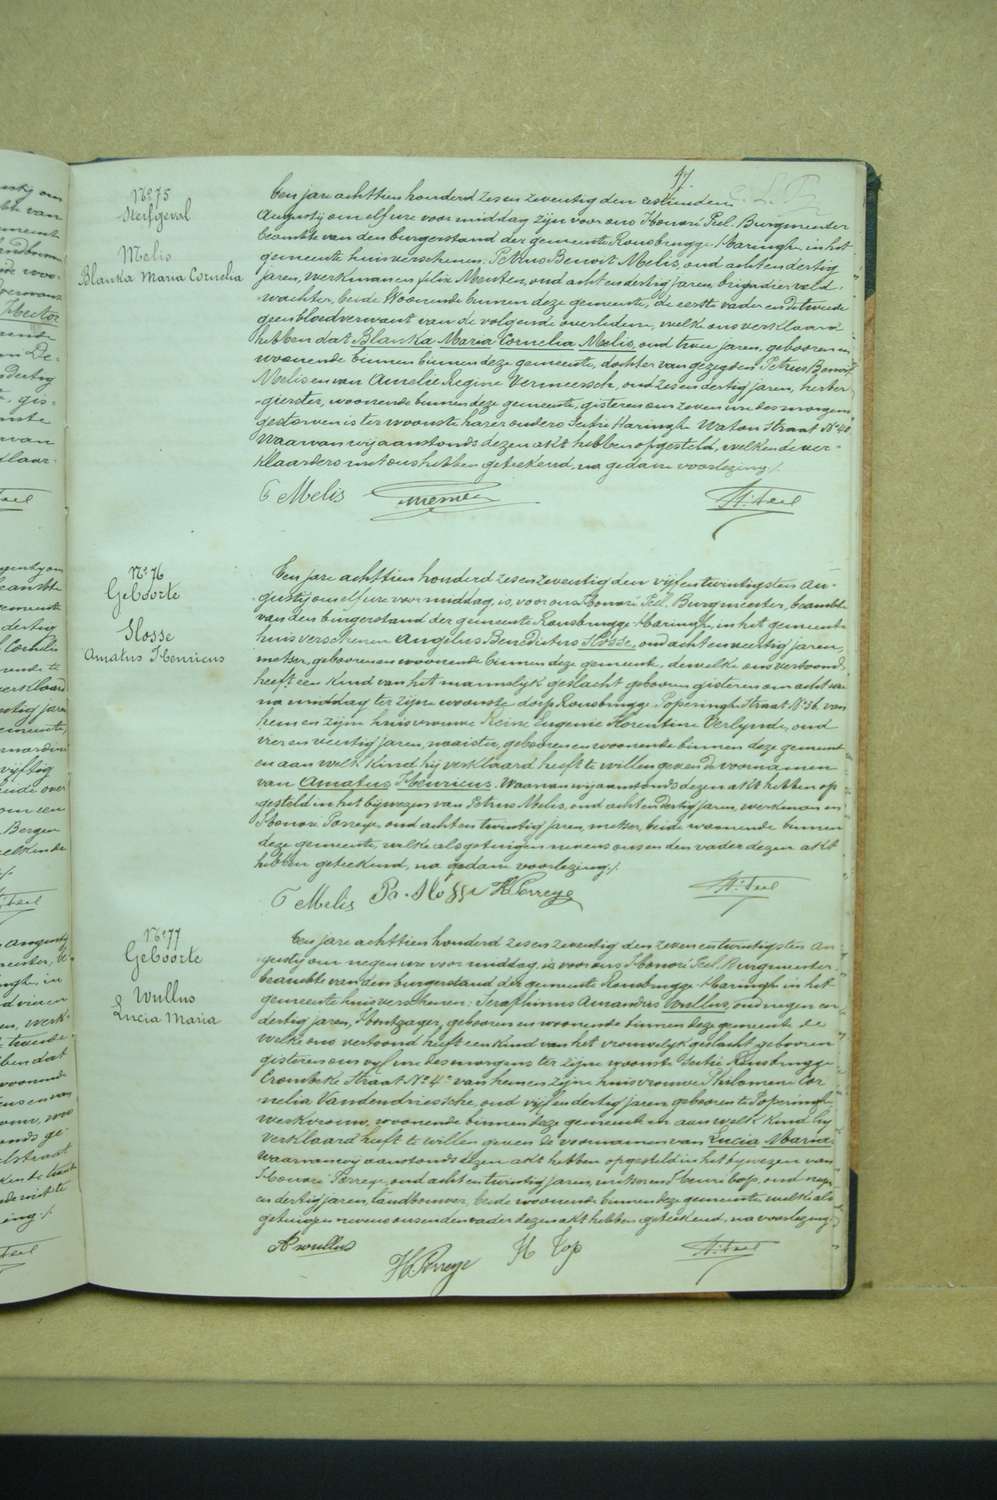 47
E. L. P.
N° 75
Sterfgeval
Melis
Blanka Maria Cornelia
Een jare achttien honderd zes en zeventig den zestienden
Augustij om elf ure voor middag zijn voor ons Honoré Peel Burgmeester
beambte van den burgerstand der gemeente Rousbrugge-Haringhe, in het
gemeente huis verschenen, Petrus Benoit Melis, oud acht en dertig
jaren, werkman en Felix Meurten, oud acht en dertig jaren, brigadier veld-
wachter, beide woonende binnen deze gemeente, de eerste vader en de tweede
geen bloedverwant van de volgende overledene, welke ons verklaard
hebben dat Blanka Maria Cornelia Melis, oud twee jaren, geboren en
woonende binnen deze gemeente, dochter van gezegden Petrus Benoit
Melis en van Amelie Regine Vermeersch, oud zes en dertig jaren, herber-
gierster, woonende binnen deze gemeente, gisteren om zeven ure des morgens
gestorven is ter woonste harer ouders Sectie Haringhe Watou Straat N° 40
Waarvan wij aanstonds dezen akt hebben opgesteld, welken de ver-
klaarders met ons hebben geteekend, na gedane voorlezing ./.
Melis
H: Peel
N° 76
Geboorte
Hosse
Amatus Henricus
Een jare achttien honderd zes en zeventig den vijf en twintigsten Au-
gustij om elf ure voor middag, is, voor ons Honoré Peel Burgmeester, beambte
van den burgerstand der gemeente Rousbrugge-Haringhe, in het gemeente
huis verschenen Angelus Benedictus Hosse, oud acht en veertig jaren,
metser, geboren en woonende binnen deze gemeente, dewelke ons vertoond
heeft een kind van het mannelijk geslacht geboren gisteren om acht ure
na middag ter zijne woonste dorp Rousbrugge Poperinghe Straat N° 36 van
hem en zijne huisvrouwe Reine Eugenie Florentine Verlynde, oud
vier en veertig jaren, naaister, geboren en woonende binnen deze gemeente
en aan welk kind hij verklaard heeft te willen geven de voornamen
van Amatus Henricus. Waarvan wij aanstonds dezen akt hebben op
gesteld in het bijwezen van Petrus Melis, oud acht en dertig jaren, werkman en
Honoré Porreye, oud acht en twintig jaren, metser, beide woonende binnen
deze gemeente, welke als getuigen nevens ons en den vader dezen akt
hebben geteekend, na gedane voorlezing ./.
Melis Hosse H. Porreye
H: Peel
N° 77
Geboorte
Wullus
Lucia Maria
Een jare achttien honderd zes en zeventig den zeven en twintigsten Au-
gustij om negen ure voor middag, is voor ons Honoré Peel Burgmeester
beambte van den burgerstand der gemeente Rousbrugge-Haringhe in het
gemeente huis verschenen: Seraphinus Amandus Wullus, oud negen en
dertig jaren, Houtzager, geboren en woonende binnen deze gemeente de
welke ons vertoond heeft een kind van het vrouwelijk geslacht geboren
gisteren om vijf ure des morgens ter zijne woonste Sectie Rousbrugge
Crombeke Straat N° 4 van hem en zijne huisvrouwe Philomene Cor
nelia Vandendriessche, oud vijf en dertig jaren geboren te Poperinghe
werkvrouw, woonende binnen deze gemeente en aan welk kind hij
verklaard heeft te willen geven de voornamen van Lucia Maria
waarvan wij aanstonds dezen akt hebben opgesteld in het bijwezen van
Honoré Porreye, oud acht en twintig jaren, metser en Henri Top, oud negen
en dertig jaren, landbouwer, beide woonende binnen deze gemeente welke als
getuigen nevens ons en den vader dezen akt hebben geteekend, na voorlezing
A. Wullus
H. Porreye
H Top
H: Peel